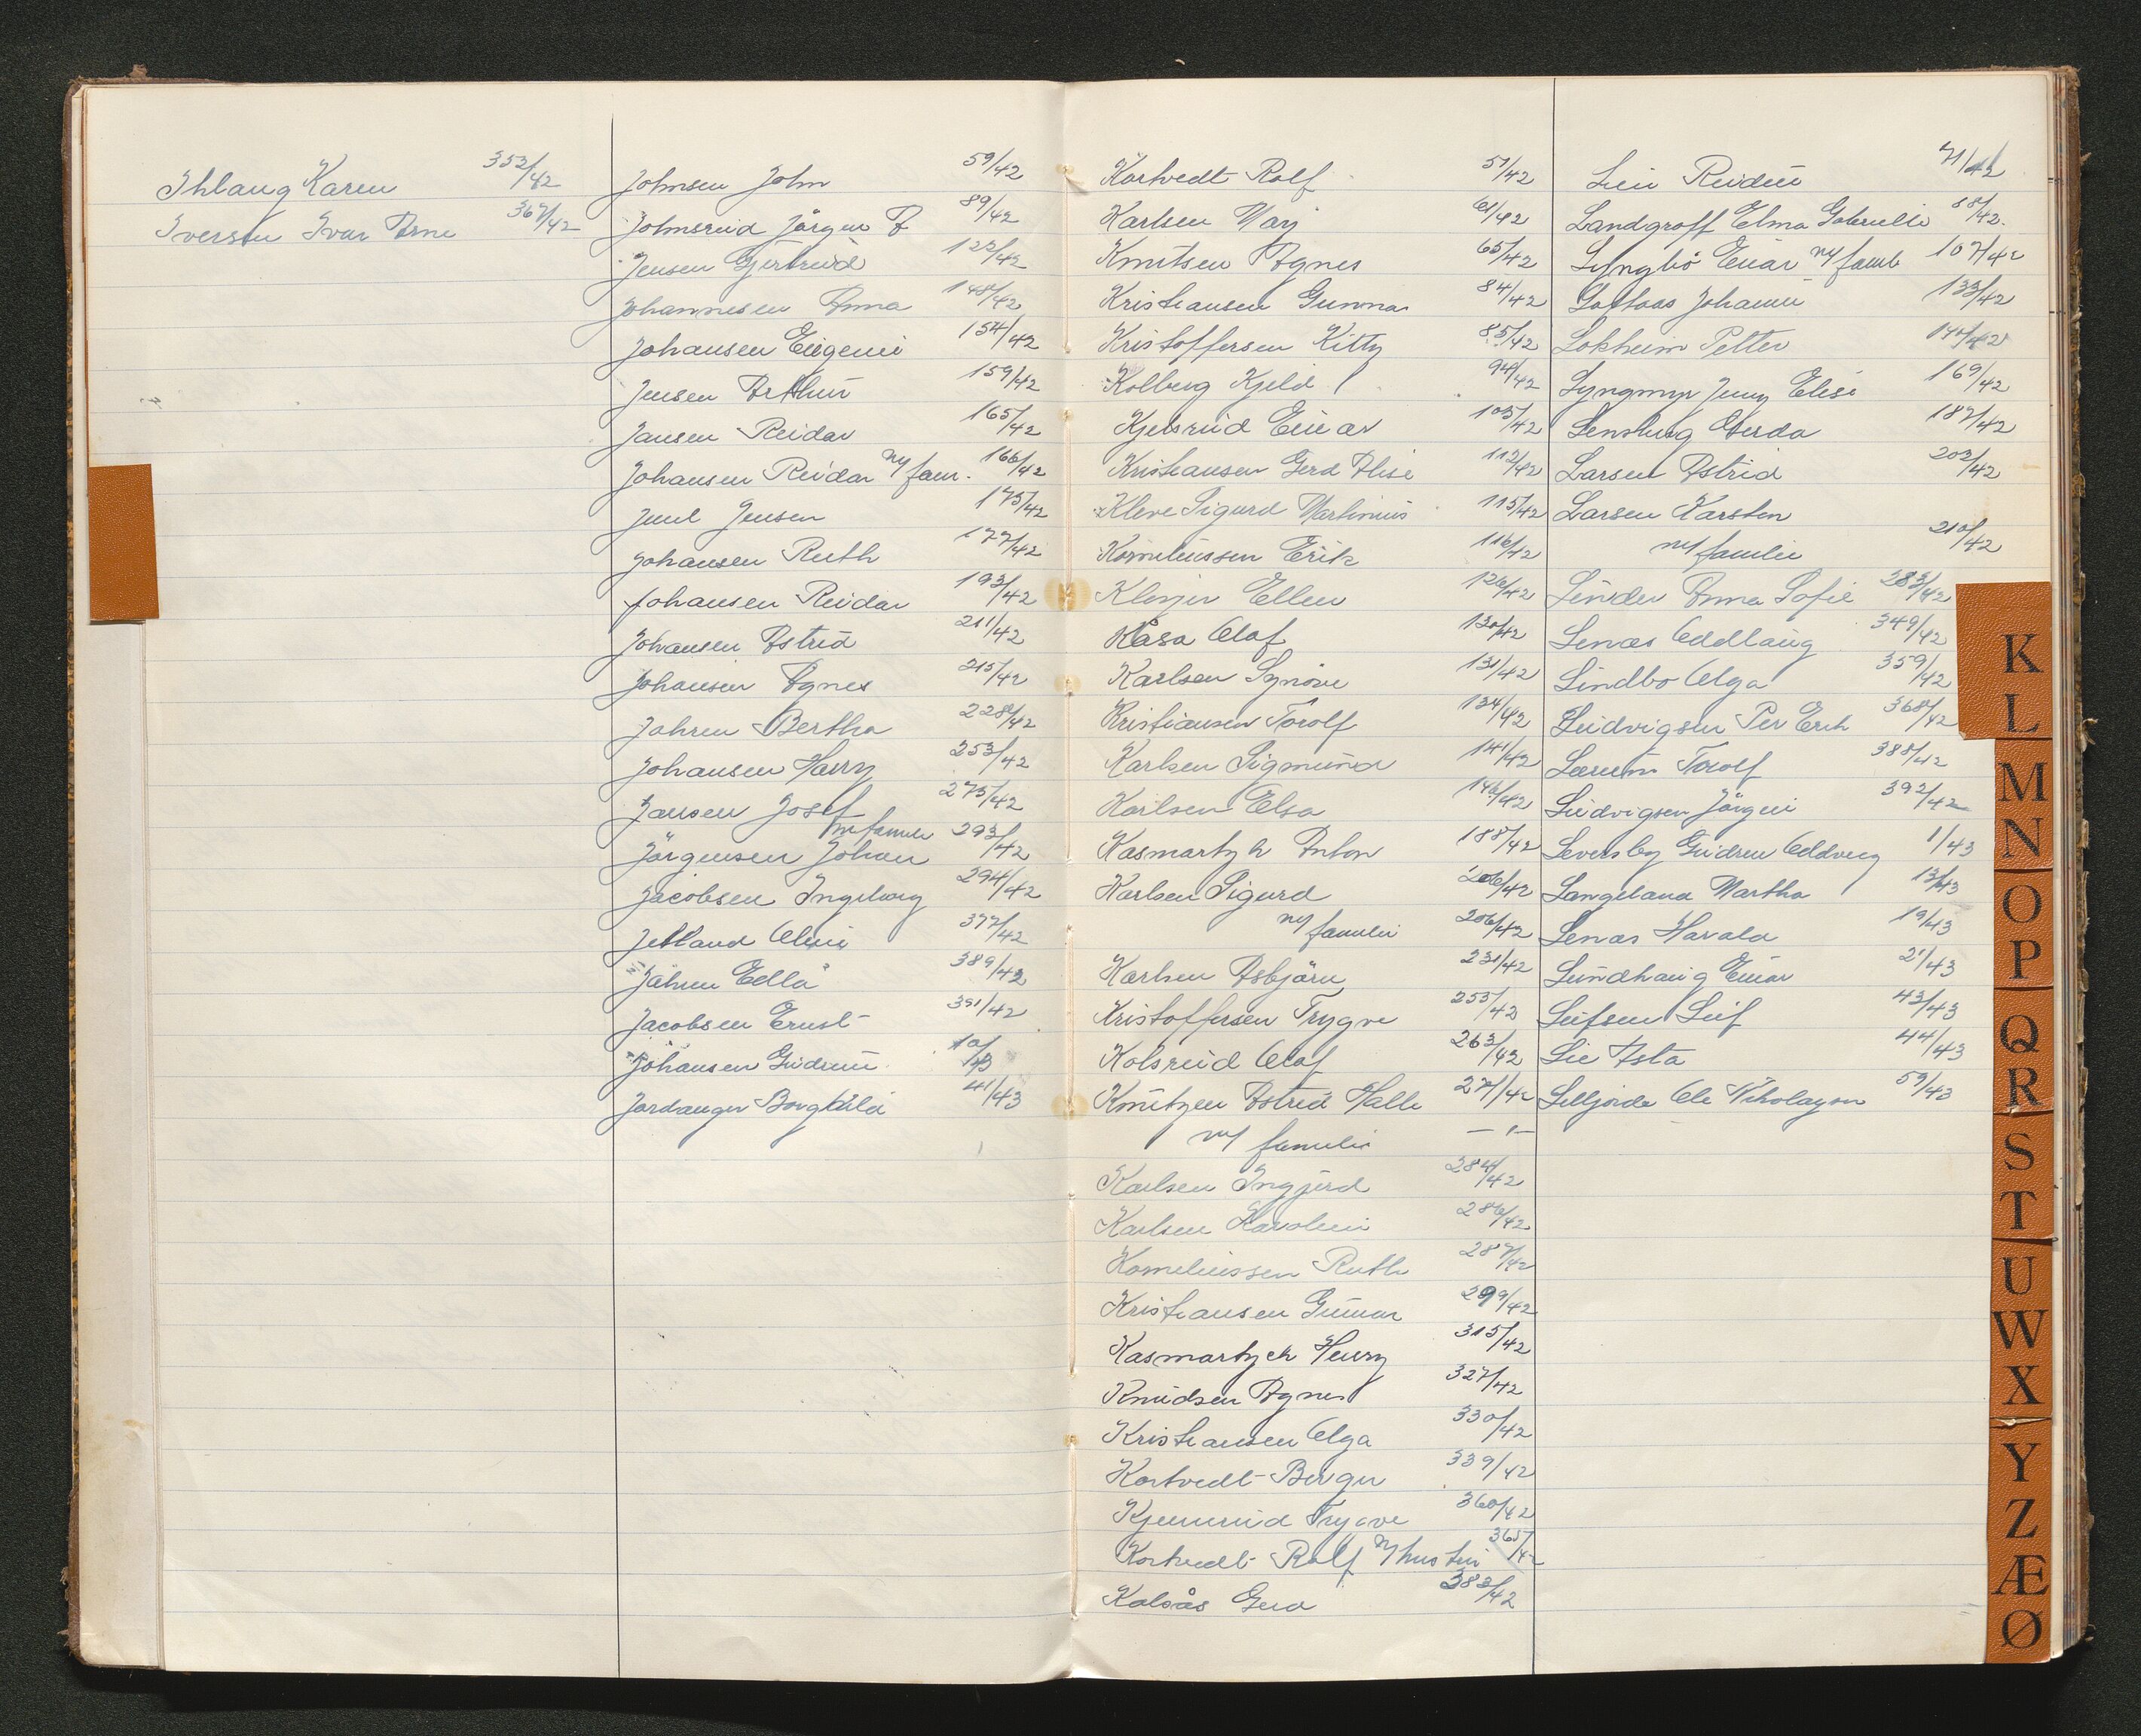 Ihlaug Karen 353/42
Iversen Ivar Arne 367/42
Johnsen John 59/42
Johnsrud Jörgen F 89/42
Jensen Gjertrud 123/42
Johannesen Anna 148/42
Johansen Eugenie 154/42
Jensen Arthur 159/42
Jansen Reidar 165/42
Johansen Reidar m/ fam. 166/42
Juul Jensen 175/42
Johansen Ruth 177/42
Johansen Reidar 193/42
Johansen Astrid 211/42
Johansen Agnes 215/42
Jahren Bertha 228/42
Johansen Harry 253/42
Jansen Josef 275/42
m familie
Jörgensen Johan 293/42
Jacobsen Ingeborg 294/42
Jetland Oline 377/42
Jahren Edla 389/42
Jacobsen Ernst 391/42
Johansen Gudrun 10/43
Jordanger Borghild 41/43
Kortvedt Rolf 51/42
Karlsen Mary 61/42
Knutsen Agnes 65/42
Kristiansen Gunnar 84/42
Kristoffersen Kitty 85/42
Kolberg Kjeld 94/42
Kjelsrud Einar 105/42
Kristiansen Gerd Alise 112/42
Kleve Sigurd Martinius 115/42
Korneliussen Erik 116/42
Ellen 126/42
Kåsa Olaf 130/42
Karlsen Synöve 131/42
Kristiansen Torolf 134/42
Karlsen Sigmund 141/42
Karlsen Elsa 146/42
Kasmartyk Anton 188/42
Karlsen Sigurd 206/42
m/ familie 206/42
Karlsen Asbjörn 231/42
Kristoffersen Trygve 255/42
Kolsrud Olaf 263/42
Knutzen Astrid Halle 271/42
m/ familie — " —
Karlsen Ingjerd 284/42
Karlsen Karoline 286/42
Korneliussen Ruth 287/42
Kristiansen Gunnar 299/42
Kasmartyck Henry 315/42
Knudsen Agnes 327/42
Kristiansen Olga 330/42
Kortvedt Birger 339/42
Trygve 360/42
Kortvedt Rolf m/ hustru 365/42
Kolsås Gerd 383/42
Lien Reidun 71/42
Landgraff Elma Gabrielle 88/42.
Lyngbö Einar m/ famil 107/42
Johanne 133/42
Lokheim Petter 140/42
Lyngmyr Jenny Elise 169/42
Gerda 187/42
Larsen Astrid 203/42
Larsen Karsten
m/ familie 210/42
Linder Anna Sofie 283/42
Lenæs Oddlaug 349/42
Lindbo Olga 359/42
Ludvigsen Per Erik 368/42
Lærum Torolf 388/42
Ludvigsen Jörgen 392/42
Leversby Gudrun Oddveig 1/43
Langeland Martha 13/43
Lenæs Harald 19/43
Lundhaug Einar 21/43
Leifsen Leif 43/43
Lie Asta 44/43
Ole Nikolaysen 59/43
K
L
M
N
O
P
Q
R
S
T
U
W
X
Y
Z
Æ
Ø